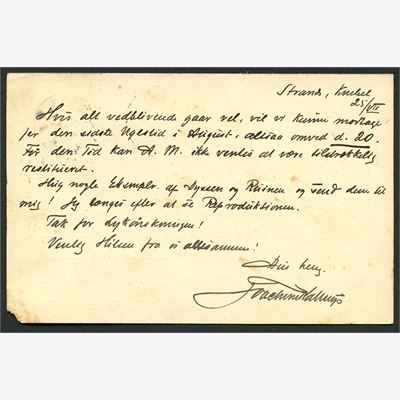 Strand, Knebel
25/VII
Hvis alt vedblivende gaar vel, vil vi kunne modtage
jer den sidste Ugestid i August, altsaa omved d. 20.
Før den Tid kan A. M. ikke ventes at være tilstrækkelig
restitueret.
Huig nogle Eksempl. af Dyssen og Ruinen og send dem til
mig! Jeg længes efter at se Reproduktionen.
Tak for Lykønskningen!
Venlig Hilsen fra os allesammen!
Din heng.
Joachim